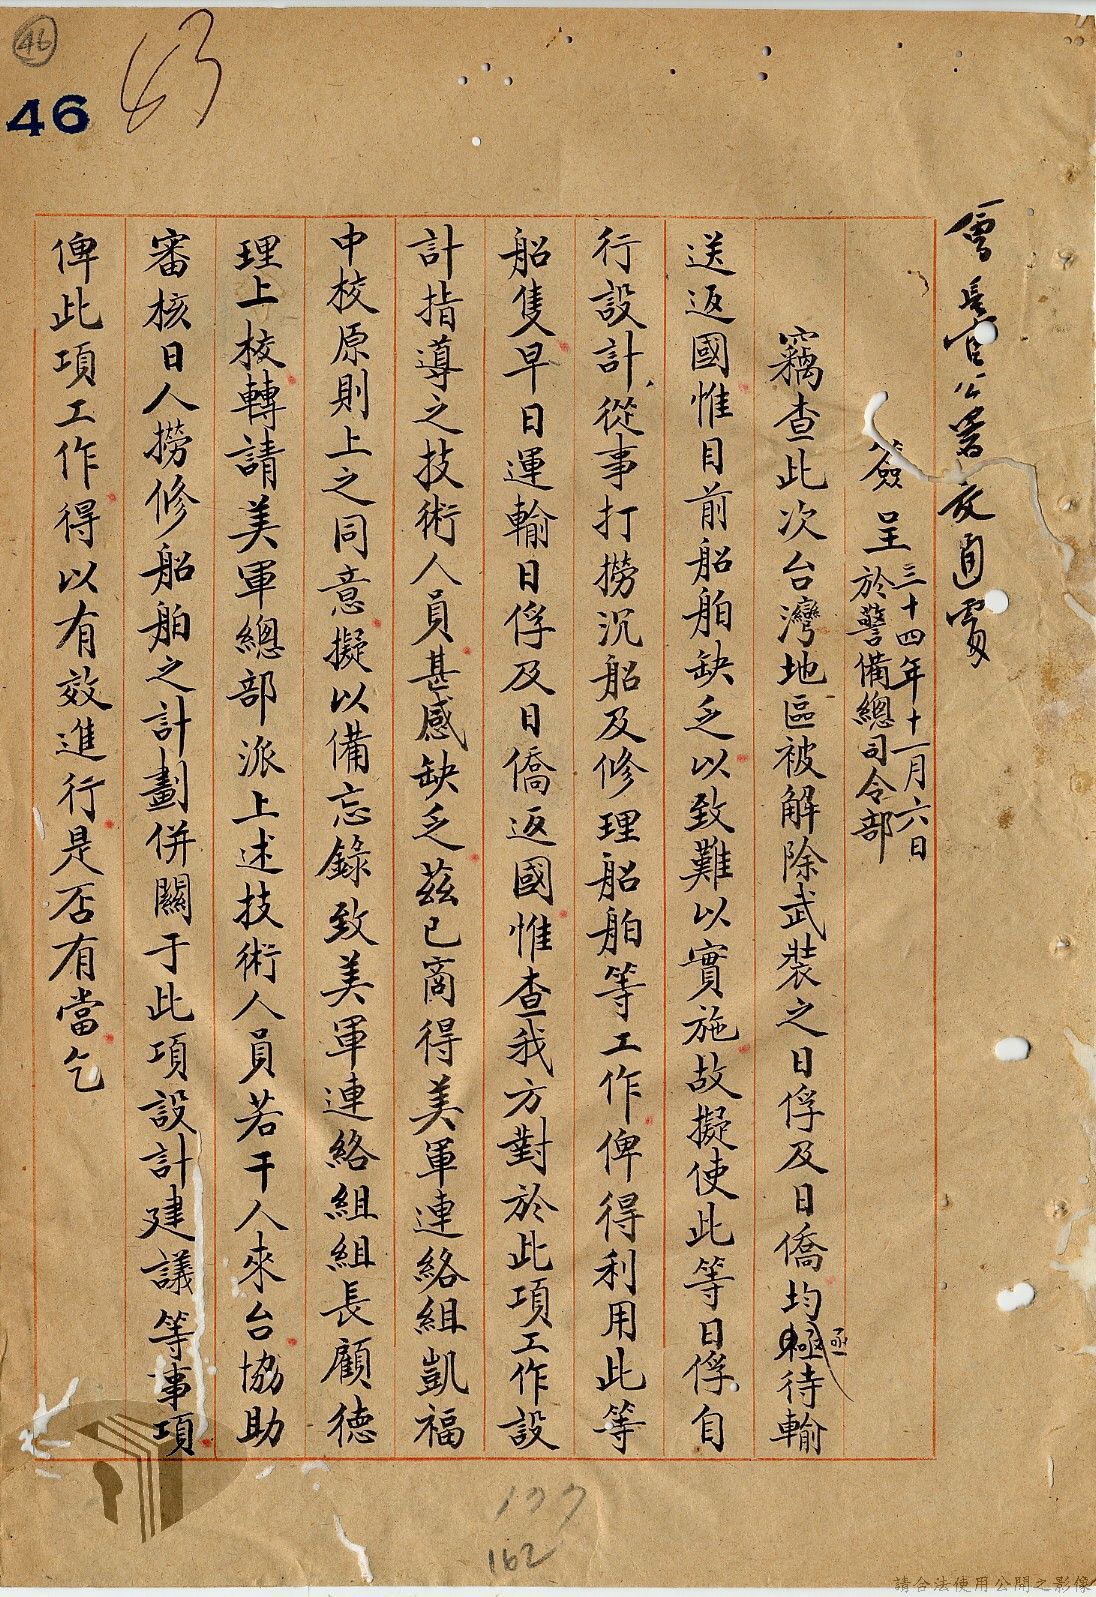 46
63
46
會長官公署交通處
簽呈 三十四年十一月六日
於警備總司令部
竊查此次台灣地區被解除武裝之日俘及日僑均亟待輸
送返國惟目前船舶缺乏以致難以實施故擬使此等日俘自
行設計從事打撈沉船及修理船舶等工作俾得利用此等
船隻早日運輸日俘及日僑返國惟查我方對於此項工作設
計指導之技術人員甚感缺乏茲已商得美軍連絡組凱福
中校原則上之同意擬以備忘錄致美軍連絡組組長顧德
理上校轉請美軍總部派上述技術人員若干人來台協助
審核日人撈修船舶之計劃併關于此項設計建議等事項
俾此項工作得以有效進行是否有當乞
162
請合法使用公開之影像